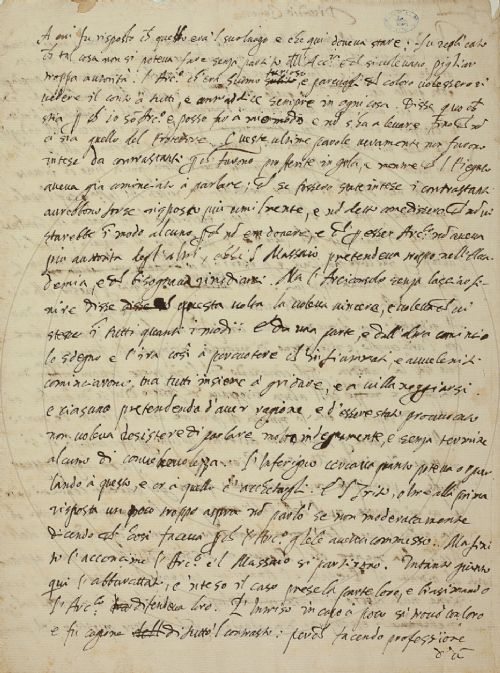 A cui fu risposto ch questo era il suo luogo e che qui doveva stare; fu replicato
ch tal cosa non si poteva fare senza partito dell'Acc.a e ch si volevano pigliar
troppa autorità. l'Arc.o ch'era huomo furioso e parevagli ch coloro volessero ri
vedere il conto à tutti, e sempre in ogni cosa. Disse quo ch
stia pch io so Arc.o e posso far a mio modo e nō s'ha a levare fino ch nō
ci sia quello del Queste ultime parole veramente non furono
intese da contrastanti pch furono proferite in gola, e mentre ch l'
aveva già cominciato à parlare; ch se fossero state intese i contrastanti
avrebbono forse risposto più umilmente, e nō detto
starebbe ī modo alcuno pch nō vi doveva, e ch p esser Arc.o nō aveva
più autorità degl'altri, ch'l Massaio pretendeva troppo nell'Acca
demia, e ch bisognava Ma l'Arciconsolo senza lasciar fi
nire disse questa volta la voleva vincere, e voleva ch vi
stesse ī tutti quanti i modi. e da una parte, e dall'altra cominciò
lo sdegno e l'ira così à percuotere ch infiammati e avveleniti
cominciarono, tra tutti insieme à gridare, e a villaneggiarsi
e ciascuno pretendendo d'aver ragione, e d'essere stato provocato
non voleva desistere di parlare molto indegnamente, e senza termine
alcuno di convenevolezza. l'Inferigno cercava quanto poteva or par
lando à questo, e or à quello d' acchetargli. E'l Trito, oltre alla prima
risposta un poco troppo aspra nō parlò se non moderatamente
dicendo ch così faceva pch l'Arc.o gle l'aveva commesso. Ma fini
to l'acconcime l'Arc.o e'l Massaio si partirono. Intanto giunto
qui l'abburattato, e inteso il caso prese la parte loro, e biasimando
l'Arc.o difendeva loro. L' in capo à poco si trovò con loro
e fu cagione di tutto'l contrasto: perch facendo professione
d' à